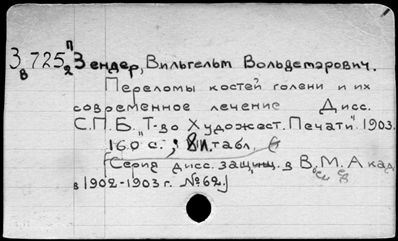 З 725 П Зендер, Вильгельм Вольдемарович.
в 2
Переломы костей голени и их
современное лечение Дисс.
С.П.Б. "Т-во Художест. Печати". 1903.
160 с.; 8 л. табл.
[Серия дисс. защищ. в В.М.Акад
в 1902-1903 г. №62.]